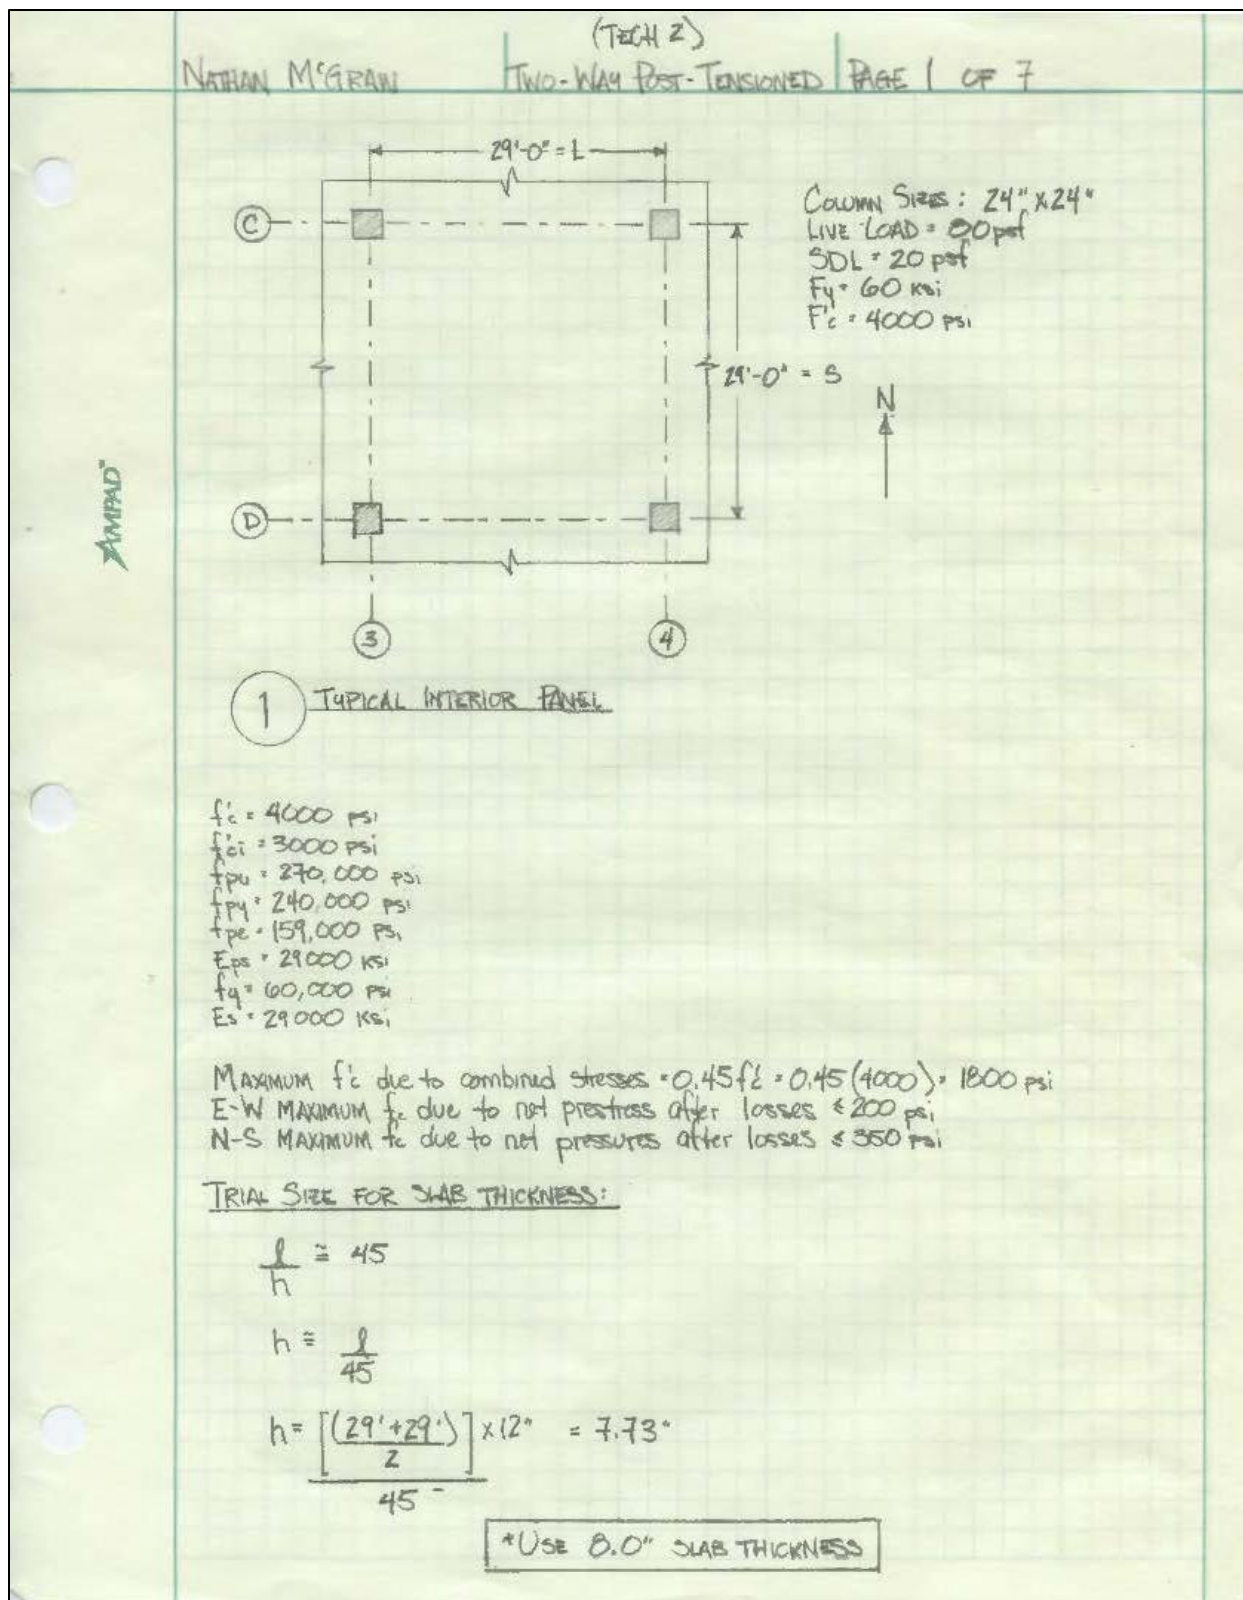 (TECH 2)
NATHAN McGRAW TWO-WAY POST-TENSIONED PAGE 1 OF 7
29'-0" = L
COLUMN SIZES: 24" x 24"
LIVE LOAD = 80 psf
SDL = 20 psf
Fy = 60 ksi
F'c = 4000 psi
C
29'-0" = S
N
AMPAD™
D
3 4
1 TYPICAL INTERIOR PANEL
f'c = 4000 psi
f'ci = 3000 psi
fpu = 270,000 psi
fpy = 240,000 psi
fpe = 159,000 psi
Eps = 29000 ksi
fy = 60,000 psi
Es = 29000 ksi
MAXIMUM f'c due to combined stresses = 0.45f'c = 0.45(4000) = 1800 psi
E-W MAXIMUM fc due to net prestress after losses ≤ 200 psi
N-S MAXIMUM fc due to net pressures after losses ≤ 350 psi
TRIAL SIZE FOR SLAB THICKNESS:
l/h ≅ 45
h ≅ l/45
h = [(29'+29')/2] x 12" / 45 = 7.73"
*USE 8.0" SLAB THICKNESS